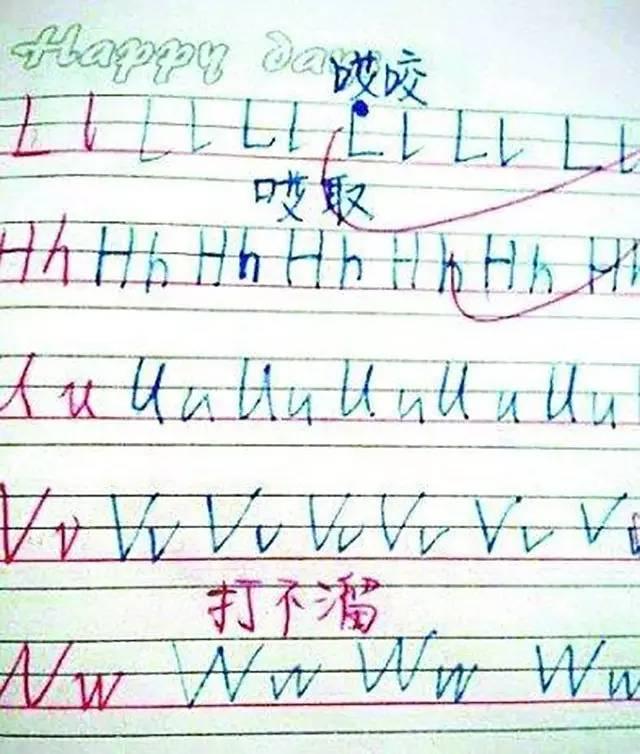 Happy day
哎咬
L l L l L l L l L l L l
哎取
H h H h H h H h H h H h H h
U u U u U u U u U u U u
V v V v V v V v V v V v V
打不溜
W w W w W w W w